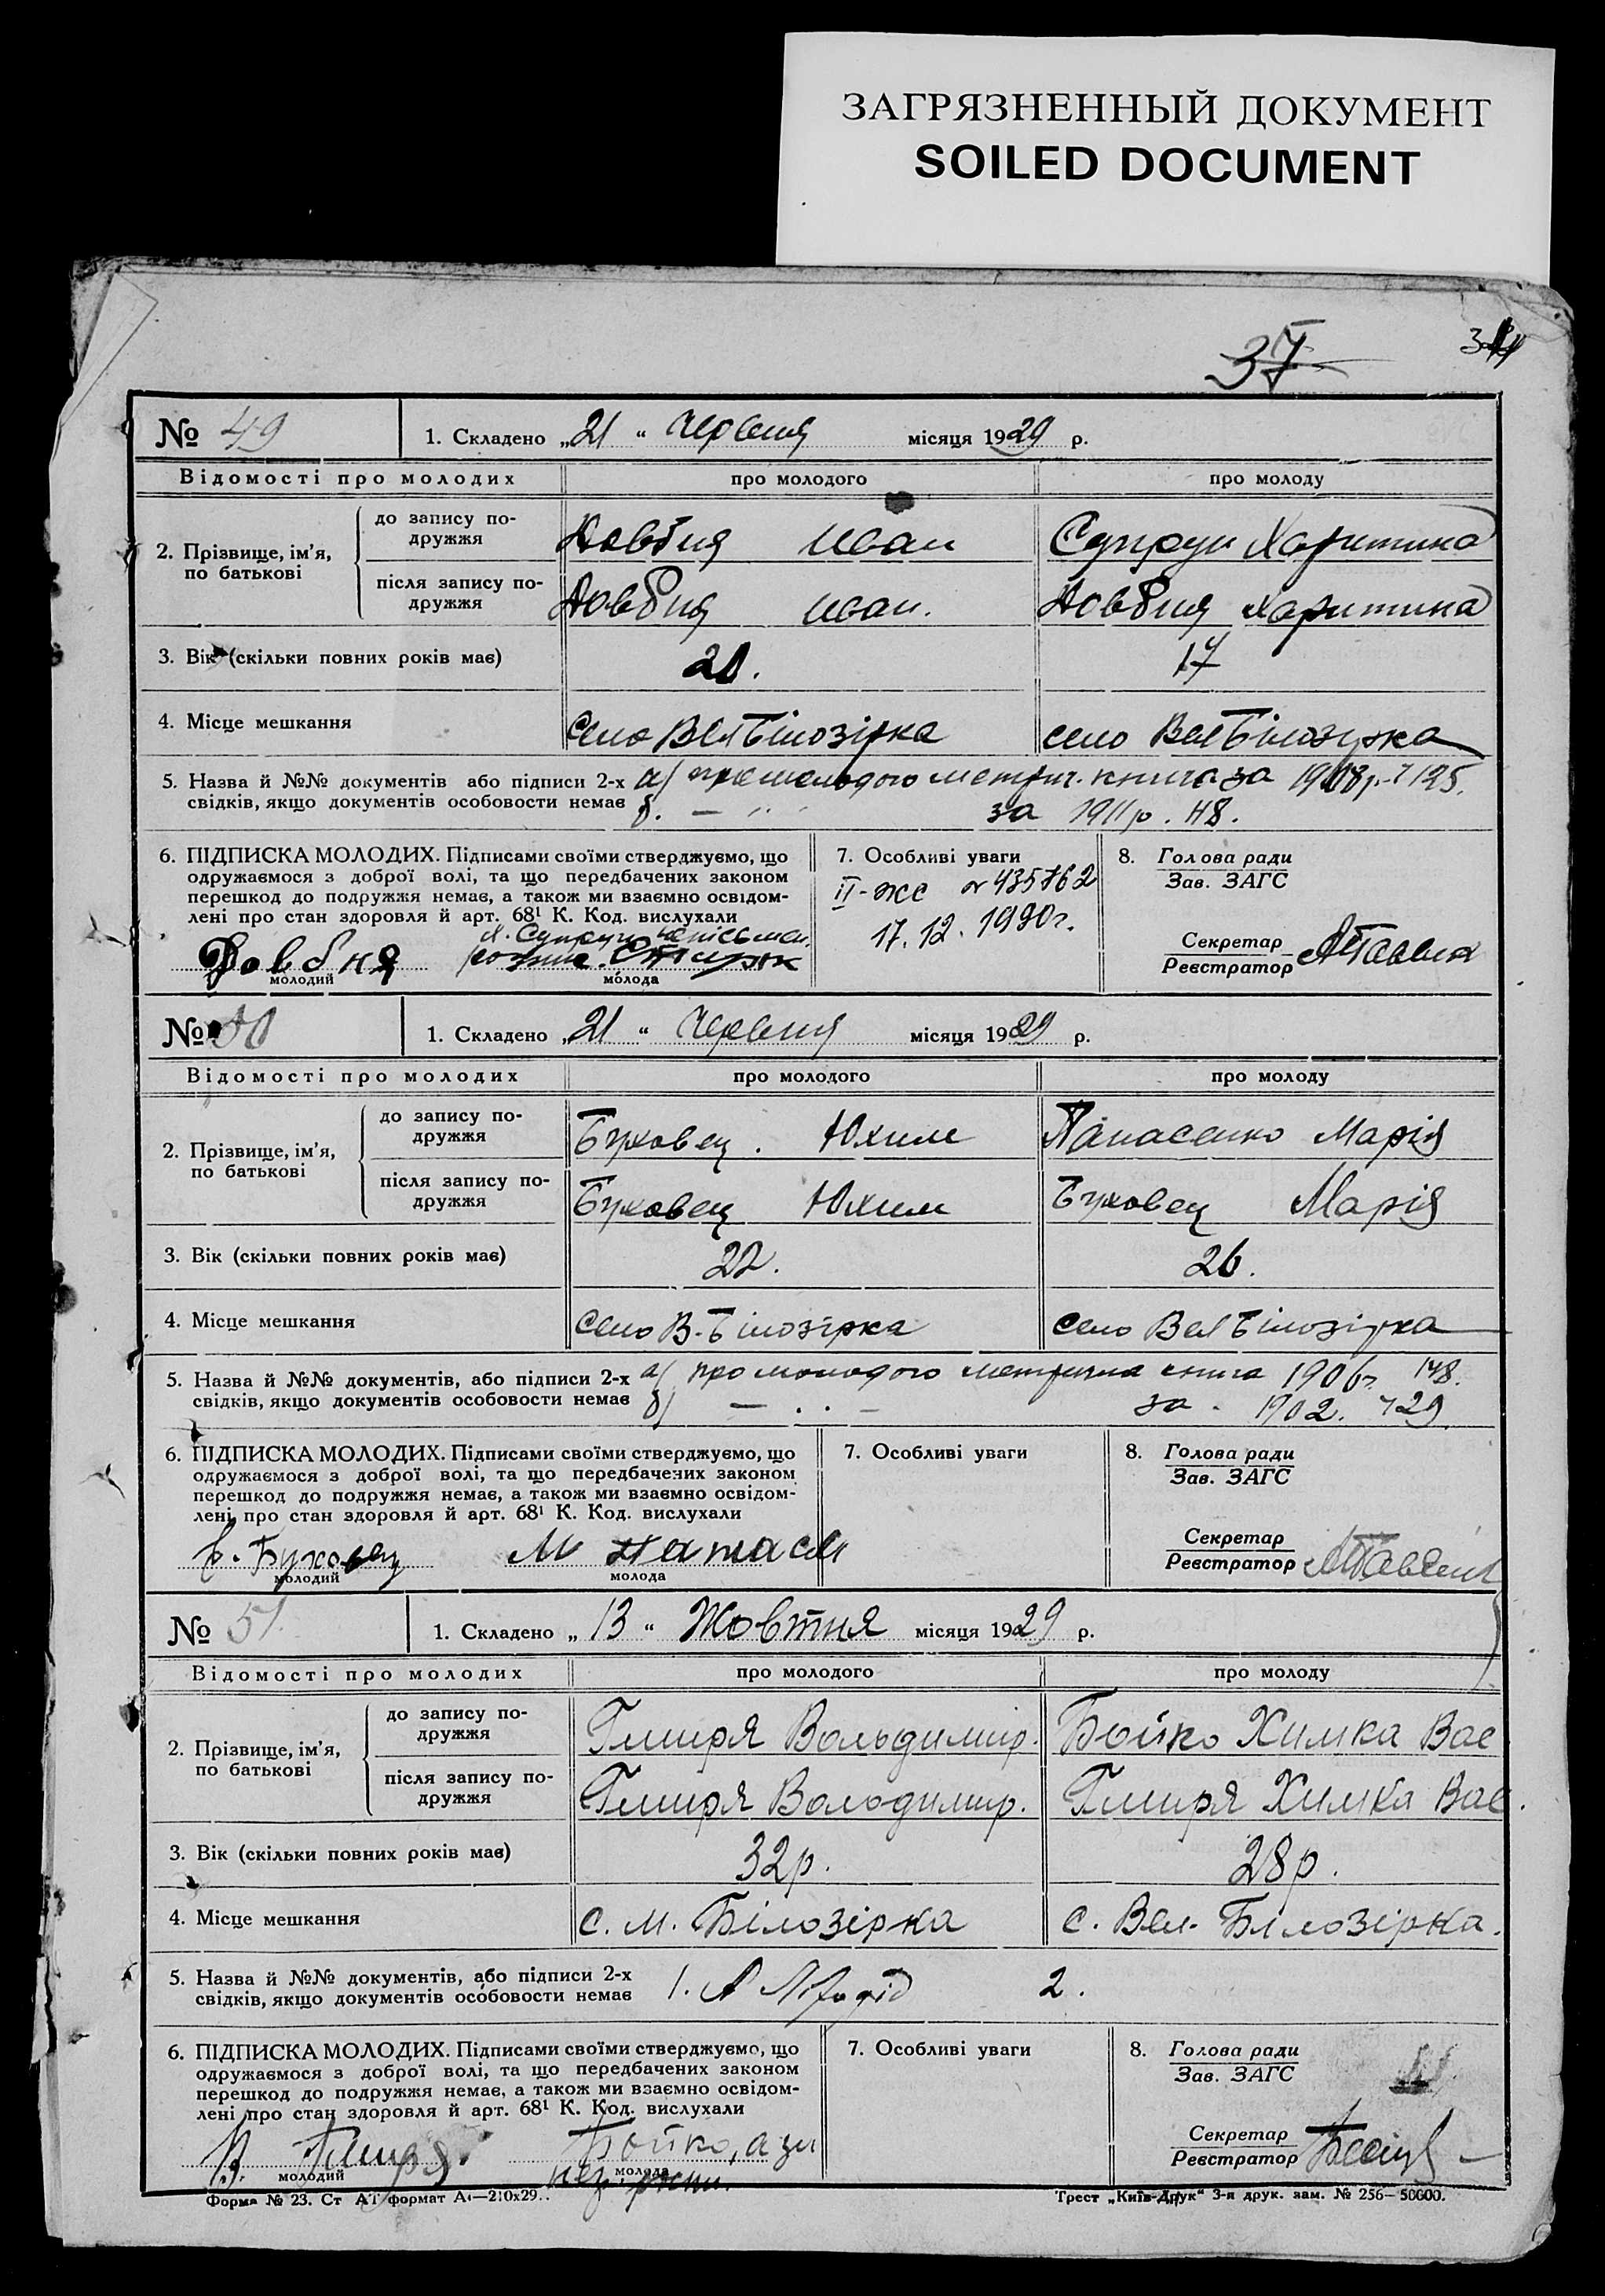 ЗАГРЯЗНЕННЫЙ ДОКУМЕНТ
SOILED DOCUMENT
37
№ 49 1. Складено „21“ Червня місяця 1929 р.
Відомості про молодих про молодого про молоду
2. Прізвище, ім’я, по батькові
до запису подружжя Довбня Иван Супрун Харитина
після запису подружжя Довбня Иван. Довбня Харитина
3. Вік (скільки повних років має) 20. 17
4. Місце мешкання Село Вел Білозірка село Вел Білозірка
5. Назва й №№ документів або підписи 2-х а) про молодого метрич. книга за 1908 р. 125.
свідків, якщо документів особовости немає б. — за 1911 р.
6. ПІДПИСКА МОЛОДИХ. Підписами своїми стверджуємо, що
одружаємося з доброї волі, та що передбачених законом
перешкод до подружжя немає, а також ми взаємно освідом-
лені про стан здоровля й арт. 68¹ К. Код. вислухали
Довбня
молодий молода
7. Особливі уваги
II-жс № 435762
17.12.1980г.
8. Голова ради
Зав. ЗАГС
Секретар
Реєстратор
№ 50 1. Складено „21“ Червня місяця 1929 р.
Відомості про молодих про молодого про молоду
2. Прізвище, ім’я, по батькові
до запису подружжя Буховец. Юхим Панасенко Марія
після запису подружжя Буховец Юхим Буховец Марія
3. Вік (скільки повних років має) 22. 26.
4. Місце мешкання Село В. Білозірка село Вел Білозірка
5. Назва й №№ документів, або підписи 2-х а) про молодого метрична книга 1906 г. 148.
свідків, якщо документів особовости немає б) — за 1902. 729
6. ПІДПИСКА МОЛОДИХ. Підписами своїми стверджуємо, що
одружаємося з доброї волі, та що передбачених законом
перешкод до подружжя немає, а також ми взаємно освідом-
лені про стан здоровля й арт. 68¹ К. Код. вислухали
Буховец М
молодий молода
7. Особливі уваги
8. Голова ради
Зав. ЗАГС
Секретар
Реєстратор
№ 51 1. Складено „13“ Жовтня місяця 1929 р.
Відомості про молодих про молодого про молоду
2. Прізвище, ім’я, по батькові
до запису подружжя Гмиря Вольдимир. Бойко Химка Вас
після запису подружжя Гмиря Володимир. Гмиря Химка Вас.
3. Вік (скільки повних років має) 32р. 28р.
4. Місце мешкання с. М. Білозірка с. Вел. Білозірка.
5. Назва й №№ документів, або підписи 2-х 1. 2.
свідків, якщо документів особовости немає
6. ПІДПИСКА МОЛОДИХ. Підписами своїми стверджуємо, що
одружаємося з доброї волі, та що передбачених законом
перешкод до подружжя немає, а також ми взаємно освідом-
лені про стан здоровля й арт. 68¹ К. Код. вислухали
В. Гмиря Бойко, а за
молодий молода
7. Особливі уваги
8. Голова ради
Зав. ЗАГС
Секретар
Реєстратор
Форма № 23. Ст АТ формат А4—210х29.. Трест „Київ-Друк“ 3-я друк. зам. № 256—50000.